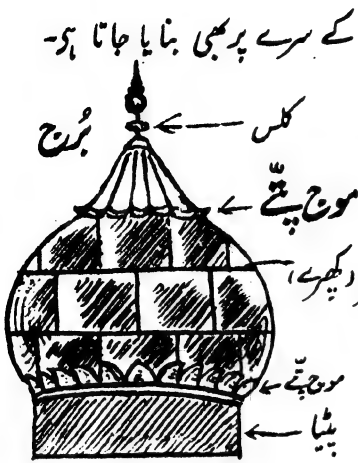 کے سرے پر بھی بنا یا جاتا ہی۔
کلس
بُرج
موج پتّے
(کھپرے)
موج پتّے
پٹیا